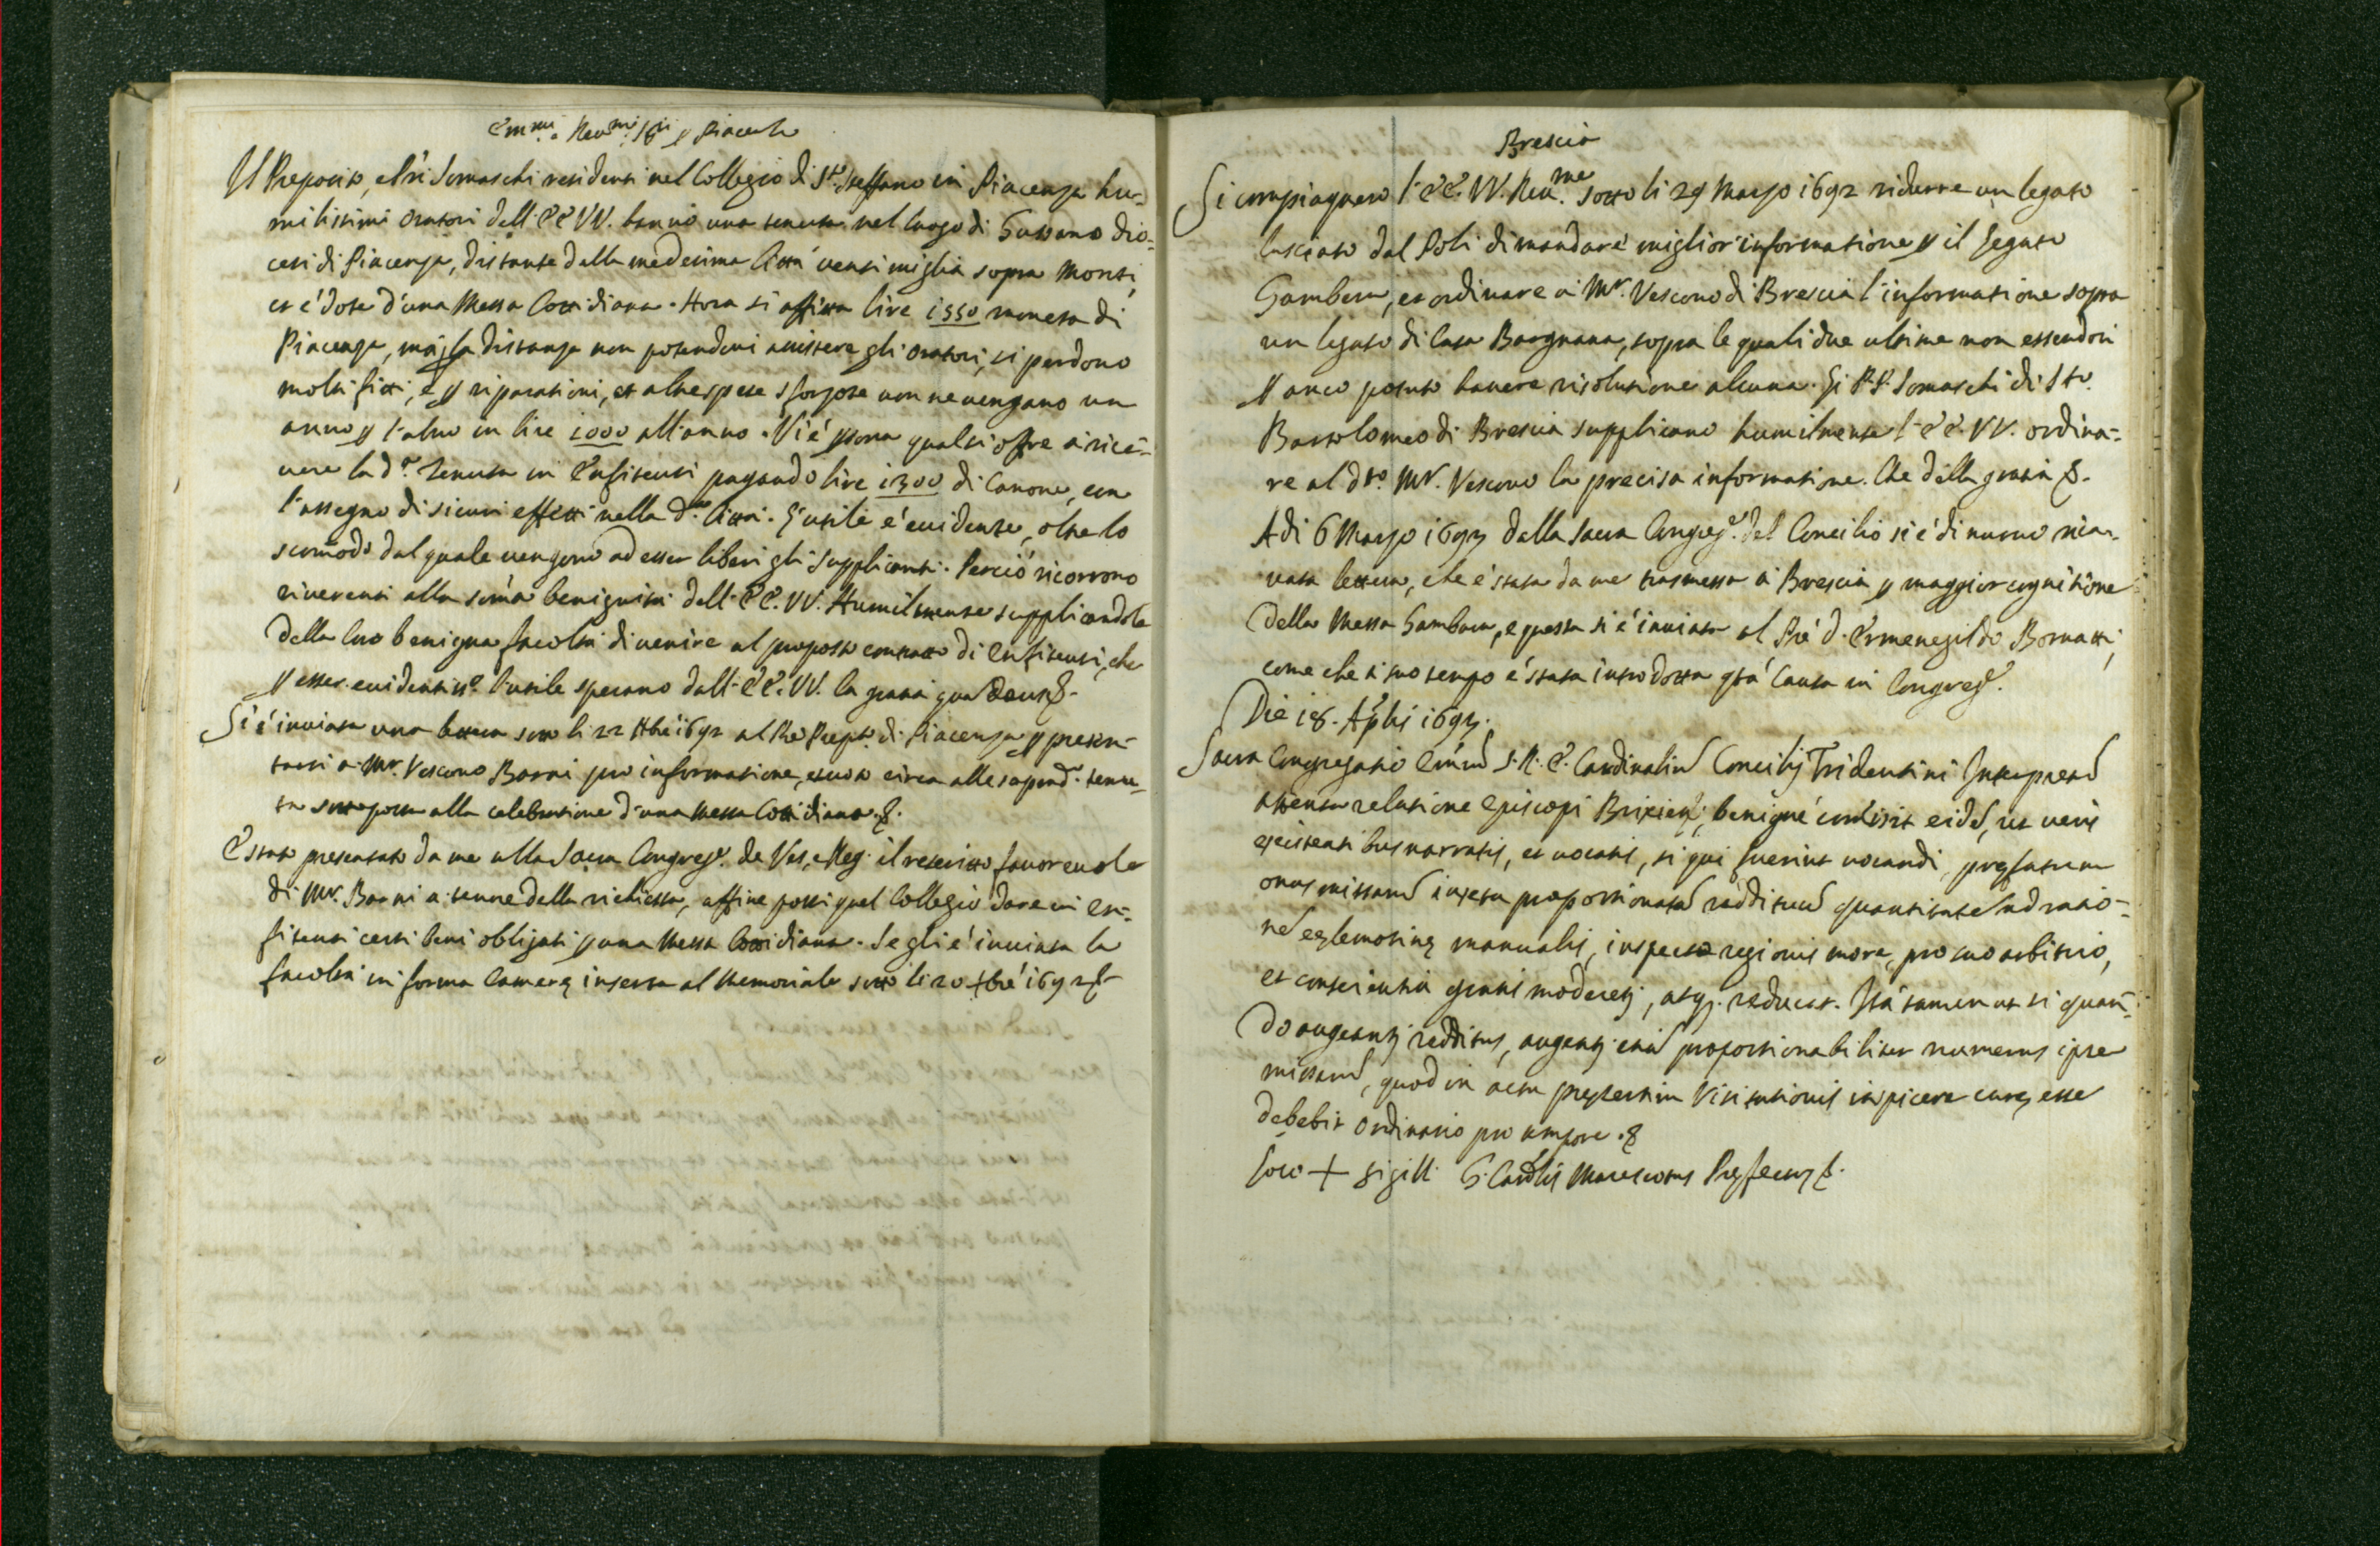 Em.mi e Reu.mi Sig.ri p Piacenza
Il Preposito, e Pri Somaschi residenti nel Collegio di S.to Steffano in Piacenza hu=
milissimi Oratori dell'EE VV. hanno una tenuta nel luogo di Gussano dio=
cesi di Piacenza, distante dalla medesima Città uenti miglia sopra Monti,
et é dote d'una Messa Cottidiana. Hora si affitta lire 1550 moneta di
Piacenza, má p la distanza non potendoui assistere gli Oratori, si perdono
molti fitti, é p riparationi, et altre spese sforzose non ne uengano un
anno p l'altro in lire 1000 all'anno. Vi é psona qual si offre á rice=
uere la d.a Tenuta in Enfiteusi pagando lire 1300 di Canone, con
l'assegno di sicuri effetti nella d.a Città. L'utile é euidente, oltre lo
scomodo dal quale uengono ad esser liberi gli Supplicanti. Perció ricorrono
riuerenti alla soma benignità dell'EE. VV. Humilmente supplicandole
della loro benigna facoltà di uenire al proposto contratto di Enfiteusi, che
p esser euidentiss.o l'utile sperano dall'EE. VV. la gratia quam Deus &.
Si é inuiata una lettera sotto li 22 Hbre 1692 al Pre Prepto. di Piacenza p presen=
tarsi a Mr. Vescouo Barni pro informatione, et uoto circa alle soprad.a tenu=
ta sottoposta alla celebratione d'una Messa Cottidiana. &.
É stato presentato da me alla Sacra Congreg.e de Ves, e Reg. il rescritto fauoreuole
di Mr. Barni a tenore della richiesta, affine possi quel Collegio dare in en=
fiteusi certi beni obligati p una Messa Cottidiana. Se gli é inuiata la
facoltà in forma Camerę inserta al Memoriale sotto li 20 Xbré 1692 &
Brescia
Si compiaquero l'EE. VV. Reu.me sotto li 29 Marzo 1692 ridurre un legato
lasciato dal Poli di mandare miglior informatione p il legato
Gambera, et ordinare á Mr. Vescouo di Brescia l'informatione sopra
un legato di Casa Bargnana, sopra le quali due ultime non essendosi
p anco potuto hauere risolutione alcuna. Gi P.P. Somaschi di Sto.
Bartolomeo di Brescia supplicano humilmente l'EE. VV. ordina=
re al dto. Mr. Vescouo la precisa informatione. Che della gratia &.
A di 6 Marzo 1693 dalla Sacra Congreg.e del Concilio si é di nuouo rica=
uata lettera, che é stata da me trasmessa á Brescia p maggior cognitione
della Messa Gambara, e questa si é inuiata al Pré D. Ermenegildo Bornatti,
come che á suo tempo é stata introdotta qta' Causa in Congreg.e
Die 18. Aplis 1693.
Sacra Congregatio Emorum S. R. E. Cardinalium Concilij Tridentini Interpretum
attenta relatione Episcopi Brixien; benigné comisit eidem, ut ueris
existentibus narratis, et uocatis, si qui fuerint uocandi, pręfatum
onus missarum iuxta proportionatam reddituum quantitatem ad ratio=
nem eęlemosinę manualis, inspecto regionis more, pro suo arbitrio,
et conscientia gratis moderetur, atque reducat. Ita tamen ut si quan=
do augeantur redditus, augeatur etiam proportionabiliter numerus ipse
missarum, quod in actu pręsertim Visitationis inspicere curę esse
debebit Ordinario pro tempore. &
Loco + Sigilli G. Cardlis Marescottus Pręfectus &.